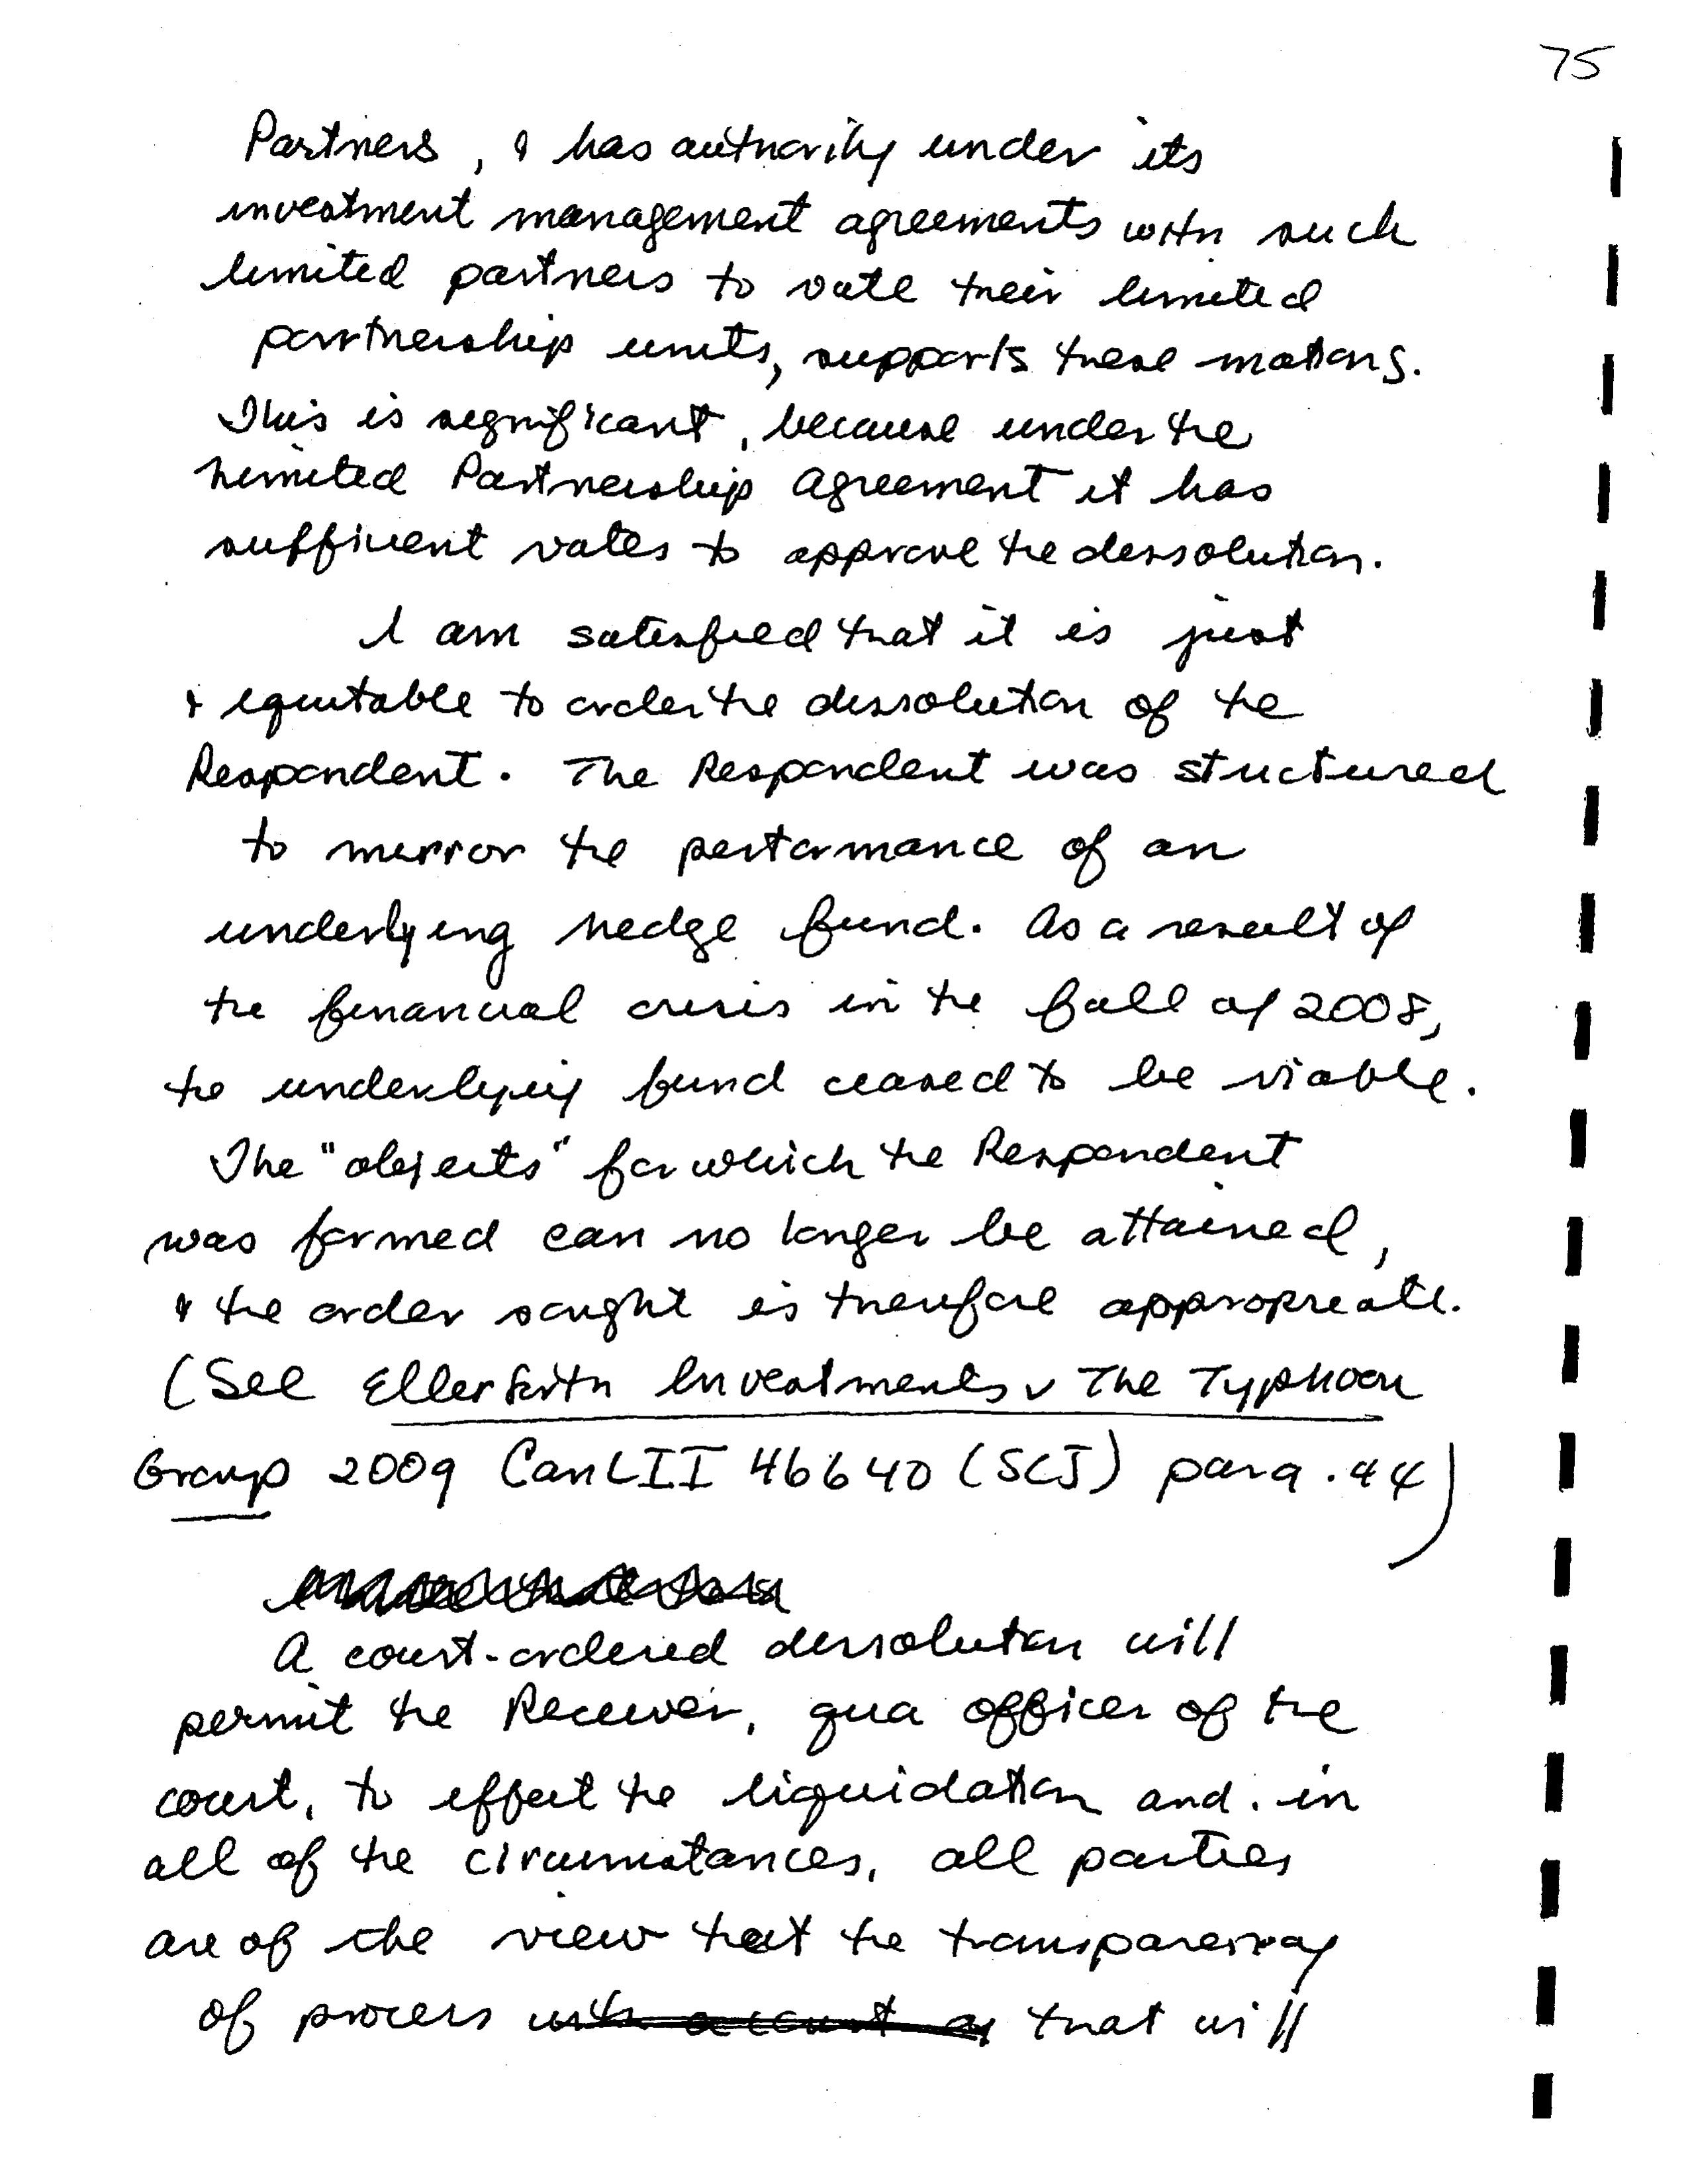 75
Partners, & has authority under its
investment management agreements with such
limited partners to vote their limited
partnership units, supports these motions.
This is significant, because under the
Limited Partnership Agreement it has
sufficient votes to approve the dissolution.
I am satisfied that it is just
& equitable to order the dissolution of the
Respondent. The Respondent was structured
to mirror the performance of an
underlying hedge fund. As a result of
the financial crisis in the fall of 2008,
the underlying fund ceased to be viable.
The "objects" for which the Respondent
was formed can no longer be attained,
& the order sought is therefore appropriate.
(See Investments v The Typhoon
Group 2009 CanLII 46640 (SCJ) para. 44)
A court-ordered dissolution will
permit the Receiver, qua officer of the
court, to effect the liquidation and, in
all of the circumstances, all parties
are of the view that the transparency
of process that will